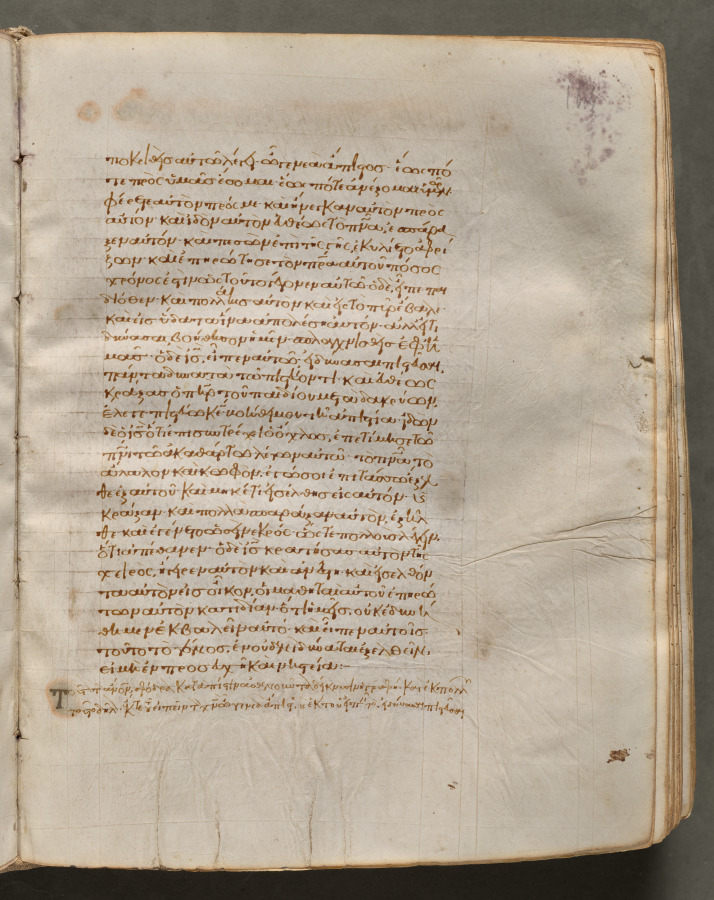 ποκριθεὶς αὐτῶ λέγει· ὦ γενεὰ ἄπιστος· ἕως πό
τε πρὸς ὑμᾶς ἔσομαι· ἕως πότε ἀνέξομαι ὑμῶν·
φέρετε αὐτὸν πρός με· καὶ ἤνεγκαν αὐτὸν πρὸς
αὐτόν· καὶ ἰδὼν αὐτὸν εὐθέως τὸ πνα, ἐσπάρα
ξεν αὐτόν· καὶ πεσὼν ἐπὶ τῆς γῆς, ἐκυλίετο ἀφρί
ζων· καὶ ἐπηρώτησε τὸν πρα αὐτοῦ πόσος
χρόνος ἐστὶν ὡς τοῦτο γέγονεν αὐτῶ· ὁ δὲ εἶπε παι
διόθεν· καὶ πολλάκις αὐτὸν καὶ εἰς τὸ πῦρ ἔβαλε·
καὶ εἰς ὕδατα ἵνα ἀπολέση αὐτόν· ἀλλ' εἴ τι
δύνασαι, βοήθησον ἡμῖν· σπλαγχνισθεὶς ἐφ' ἡ
μᾶς· ὁ δὲ ις, εἶπεν αὐτῶ· εἰ δύνασαι πιστεῦσαι,
πάντα δυνατὰ τῶ πιστεύοντι· καὶ εὐθέως
κράξας ὁ πηρ τοῦ παιδίου μετὰ δακρύων,
ἔλεγε· πιστεύω κε βοήθει μου τῆ ἀπιστία· ἰδὼν
δὲ ὁ ις ὅτι ἐπισυντρέχει ὁ ὄχλος, ἐπετίμησε τῶ
πνι τῶ ἀκαθάρτω λέγων αὐτῶ· τὸ πνα τὸ
ἄλαλον καὶ κωφόν, ἐγώ σοι ἐπιτάσσω ἔξελ
θε ἐξ αὐτοῦ· καὶ μηκέτι εἰσέλθης εἰς αὐτόν· καὶ
κράξαν καὶ πολλὰ σπαράξαν αὐτόν, ἐξῆλ
θε· καὶ ἐγένετο ὡσεὶ νεκρός· ὥστε πολλοὺς λέγειν,
ὅτι ἀπέθανεν· ὁ δὲ ις κρατήσας αὐτὸν τῆς
χειρός, ἤγειρεν αὐτὸν καὶ ἀνέστη· καὶ εἰσελθόν
τα αὐτὸν εἰς οἶκον, οἱ μαθηταὶ αὐτοῦ ἐπηρώ
των αὐτὸν κατ' ἰδίαν· ὅτι ἡμεῖς οὐκ ἐδυνή
θημεν ἐκβαλεῖν αὐτό· καὶ εἶπεν αὐτοῖς·
τοῦτο τὸ γένος, ἐν οὐδενὶ δύναται ἐξελθεῖν,
εἰ μὴ ἐν προσευχῆ καὶ νηστεία: